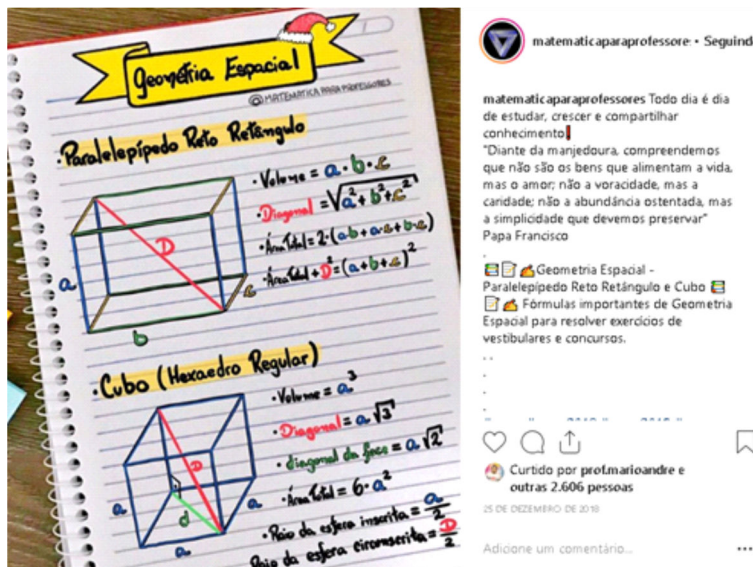 Geometria Espacial
@MATEMATICA PARA PROFESSORES
• Paralelepípedo Reto Retângulo
• Volume = a · b · c
• Diagonal = √a² + b² + c²
• Área Total = 2·(a·b + a·c + b·c)
• Área Total + D² = (a + b + c)²
D
a
b
c
• Cubo (Hexaedro Regular)
• Volume = a³
• Diagonal = a √3
• diagonal da face = a √2
• Área Total = 6 · a²
• Raio da esfera inscrita = a/2
Raio da esfera circunscrita = D/2
D
d
a
a
a
matematicaparaprofessore: • Seguind
matematicaparaprofessores Todo dia é dia
de estudar, crescer e compartilhar
conhecimento❗
"Diante da manjedoura, compreendemos
que não são os bens que alimentam a vida,
mas o amor; não a voracidade, mas a
caridade; não a abundância ostentada, mas
a simplicidade que devemos preservar"
Papa Francisco
.
📚📝✍Geometria Espacial -
Paralelepípedo Reto Retângulo e Cubo 📚
📝✍ Fórmulas importantes de Geometria
Espacial para resolver exercícios de
vestibulares e concursos.
. .
.
.
.
Curtido por prof.marioandre e
outras 2.606 pessoas
25 DE DEZEMBRO DE 2018
Adicione um comentário...